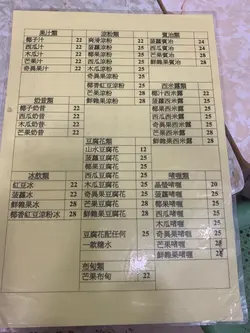 果汁類
椰子汁 22
西瓜汁 22
木瓜汁 22
芒果汁 22
奇異果汁 22
奶昔類
椰子奶昔 22
西瓜奶昔 22
木瓜奶昔 22
芒果奶昔 22
冰飲類
紅豆冰 22
菠蘿冰 22
鮮雜果冰 22
椰香紅豆涼粉冰 22
涼粉類
爽滑涼粉 22
菠蘿涼粉 25
西瓜涼粉 25
木瓜涼粉 25
奇異果涼粉 25
芒果涼粉 25
鮮雜果涼粉 25
豆腐花類
山水豆腐花 12
菠蘿豆腐花 25
椰果豆腐花 25
西瓜豆腐花 25
木瓜豆腐花 25
奇異果豆腐花 25
芒果豆腐花 25
鮮雜果豆腐花 25
豆腐花配任何 25
一款糖水
布甸類
芒果布甸 22
賓治類
菠蘿賓治 24
西瓜賓治 24
芒果賓治 24
鮮雜果賓治 28
西米露類
椰汁西米露 22
菠蘿西米露 25
椰果西米露 25
西瓜西米露 25
木瓜西米露 25
奇異果西米露 25
芒果西米露 25
鮮雜果西米露 25
啫喱類
晶瑩啫喱 20
菠蘿啫喱 25
椰果啫喱 25
西瓜啫喱 25
木瓜啫喱 25
奇異果啫喱 25
芒果啫喱 25
鮮雜果啫喱 25